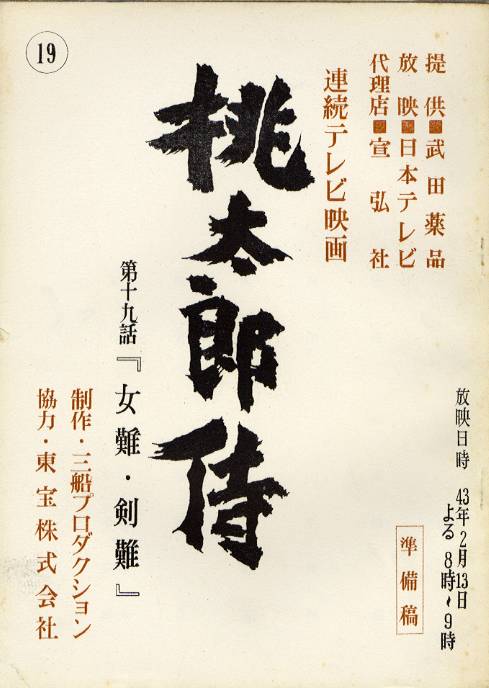 19
提供 武田薬品
放映 日本テレビ
代理店 宣弘社
連続テレビ映画
桃太郎侍
第十九話『女難・剣難』
制作・三船プロダクション
協力・東宝株式会社
放映日時 43年2月13日
よる 8時~9時
準備稿